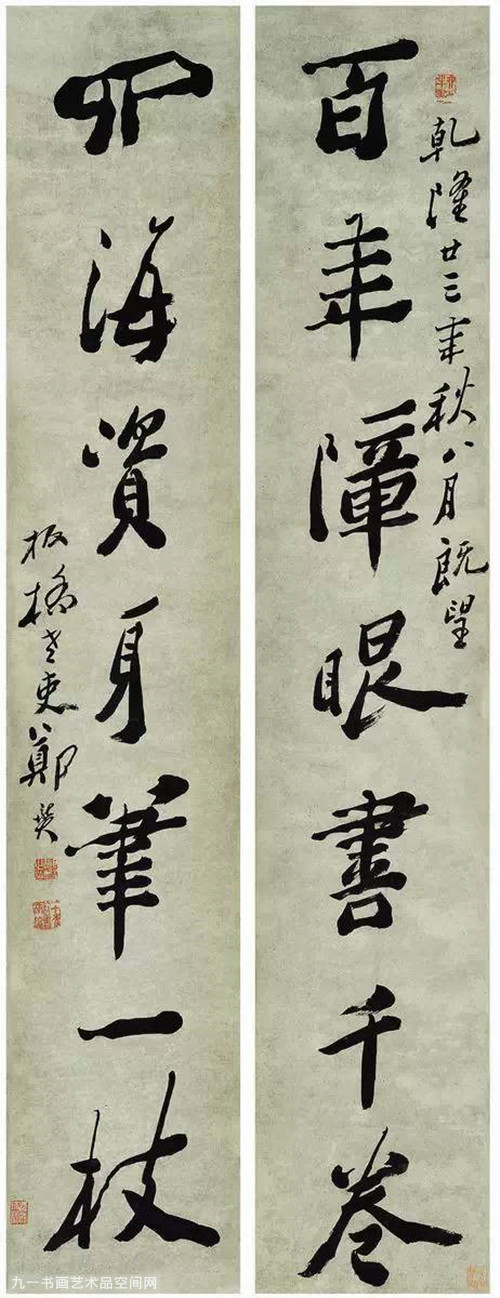 百年障眼書千卷
乾隆廿三年秋八月既望
四海資身筆一枝
板橋老吏鄭燮
九一书画艺术品空间网